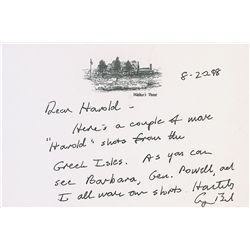 Walker's Point
8-2-98
Dear Harold -
Here's a couple of more
"Harold" shots from the
Greek Isles. As you can
see Barbara, Gen. Powell, and
I all wore our shorts.